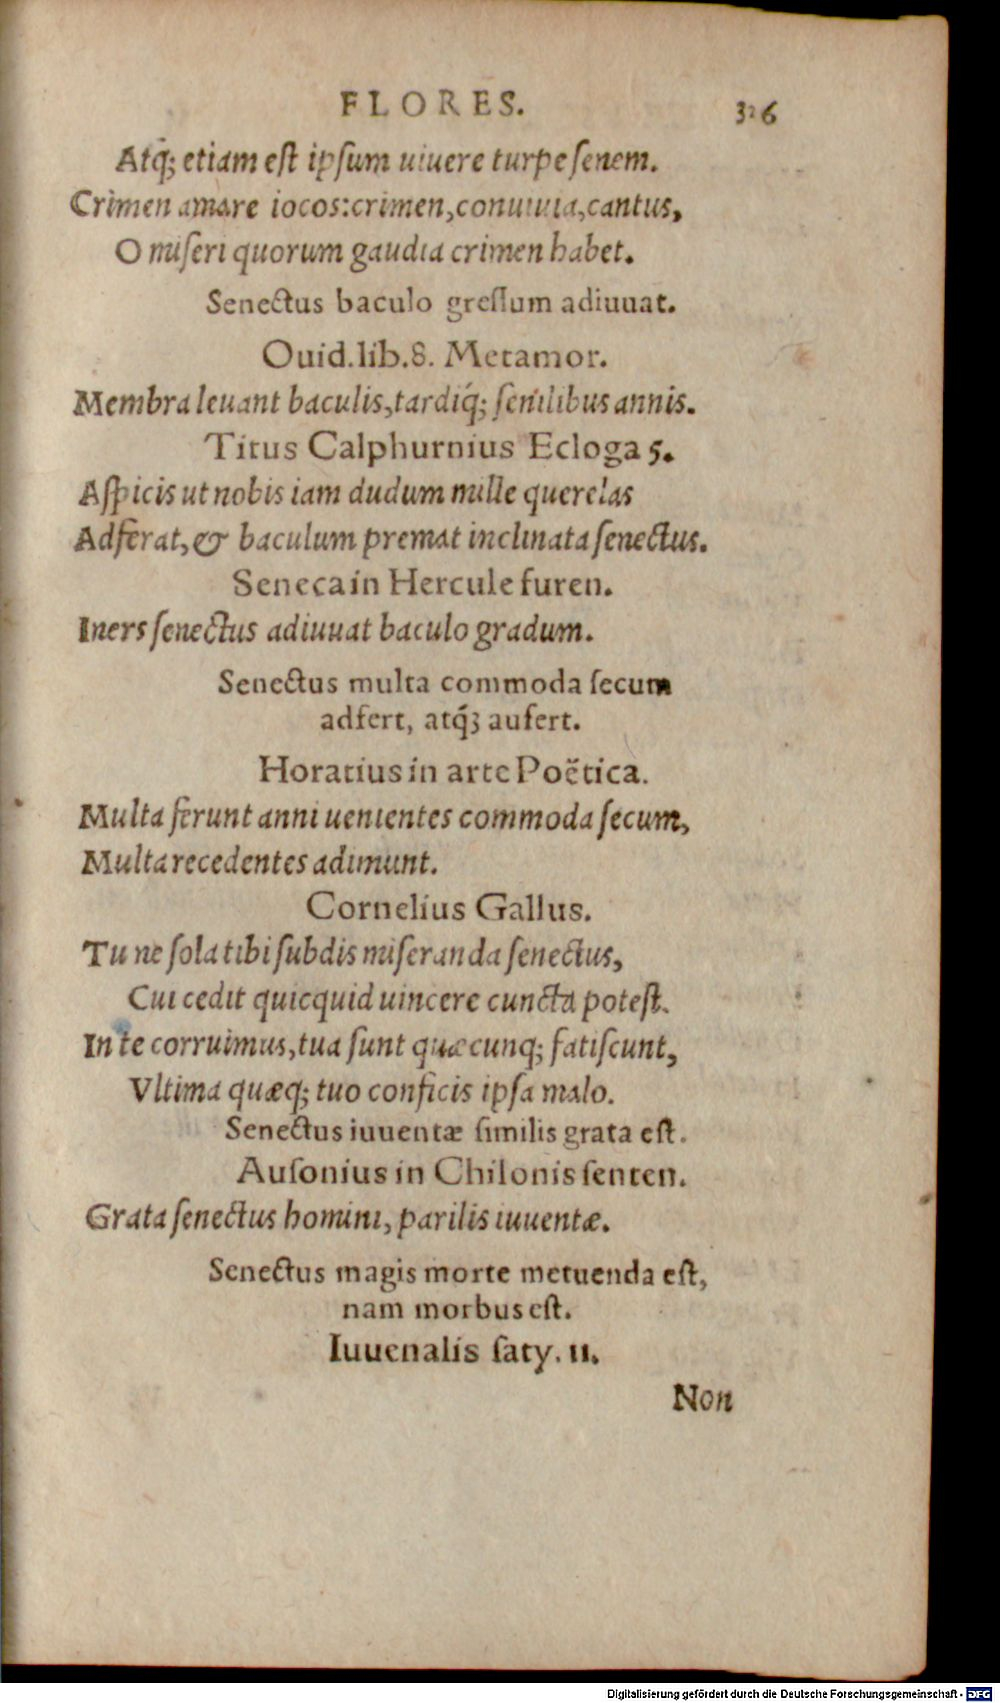 FLORES. 326
Atq́; etiam eſt ipſum uiuere turpe ſenem.
Crimen amare iocos: crimen, conuiuia, cantus,
O miſeri quorum gaudia crimen habet.
Senectus baculo greſſum adiuuat.
Ouid. lib. 8. Metamor.
Membra leuant baculis, tardiq́; ſenilibus annis.
Titus Calphurnius Ecloga 5.
Aſpicis ut nobis iam dudum mille querelas
Adferat, & baculum premat inclinata ſenectus.
Seneca in Hercule furen.
Iners ſenectus adiuuat baculo gradum.
Senectus multa commoda ſecum
adfert, atq́ꝫ aufert.
Horatius in arte Poëtica.
Multa ferunt anni uenientes commoda ſecum,
Multa recedentes adimunt.
Cornelius Gallus.
Tu ne ſola tibi ſubdis miſeranda ſenectus,
Cui cedit quicquid uincere cuncta poteſt.
In te corruimus, tua ſunt quæcunq; fatiſcunt,
Vltima quæq; tuo conficis ipſa malo.
Senectus iuuentæ ſimilis grata eſt.
Auſonius in Chilonis ſenten.
Grata ſenectus homini, parilis iuuentæ.
Senectus magis morte metuenda eſt,
nam morbus eſt.
Iuuenalis ſaty. 11.
Non
Digitalisierung gefördert durch die Deutsche Forschungsgemeinschaft - DFG